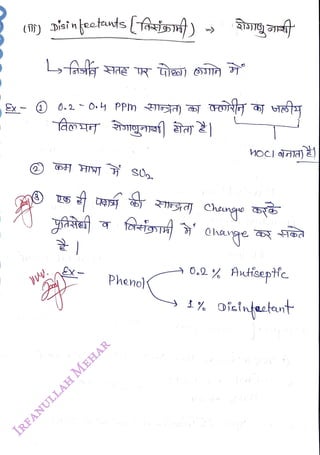 (iii) Disinfectants [विसंक्रामी) → रोगाणुनाशी
↳ निर्जीव सतह पर पोछा लगाने में
Ex - ① 0.2 - 0.4 PPm सान्द्रता का क्लोरीन का जलीय
विलयन रोगाणुनाशी होता है।
HOCl बनाता है।
② कम मात्रा में SO2
③ एक ही पदार्थ की सान्द्रता change करके
प्रतिरोधी व विसंक्रामी में change कर सकते
है।
Ex -
Phenol
→ 0.2 % Antiseptic
→ 1 % Disinfectant
IRFANULLAH MEHAR